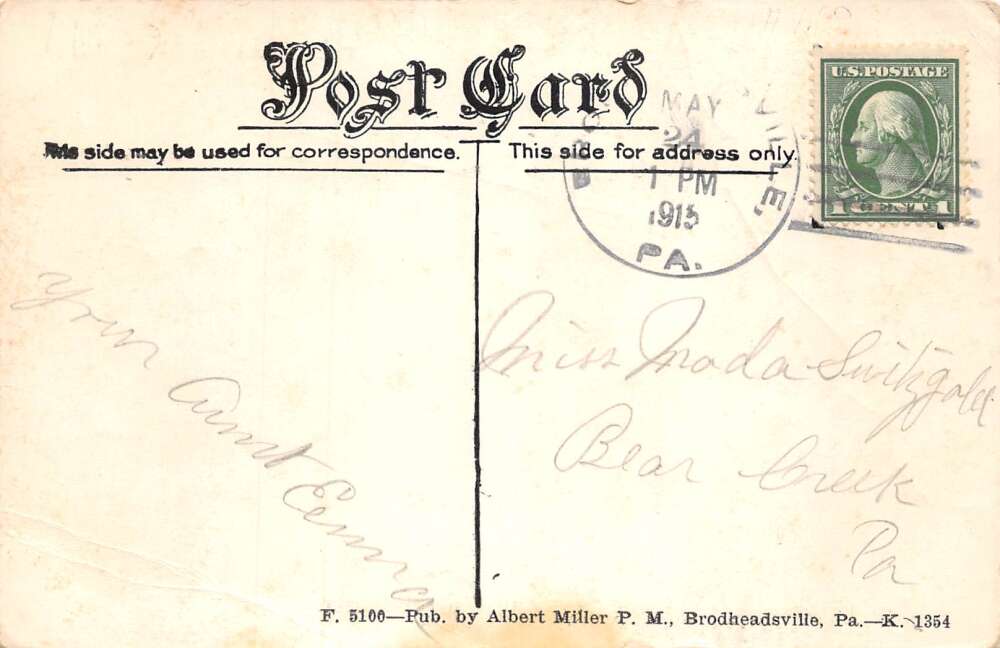 Post Card
This side may be used for correspondence.
This side for address only.
MAY
24
1 PM
1915
PA.
U.S. POSTAGE
1 CENT 1
Your
Aunt
Emma
Miss Moda
Bear Creek
Pa
F. 5100—Pub. by Albert Miller P. M., Brodheadsville, Pa.—K. 1354